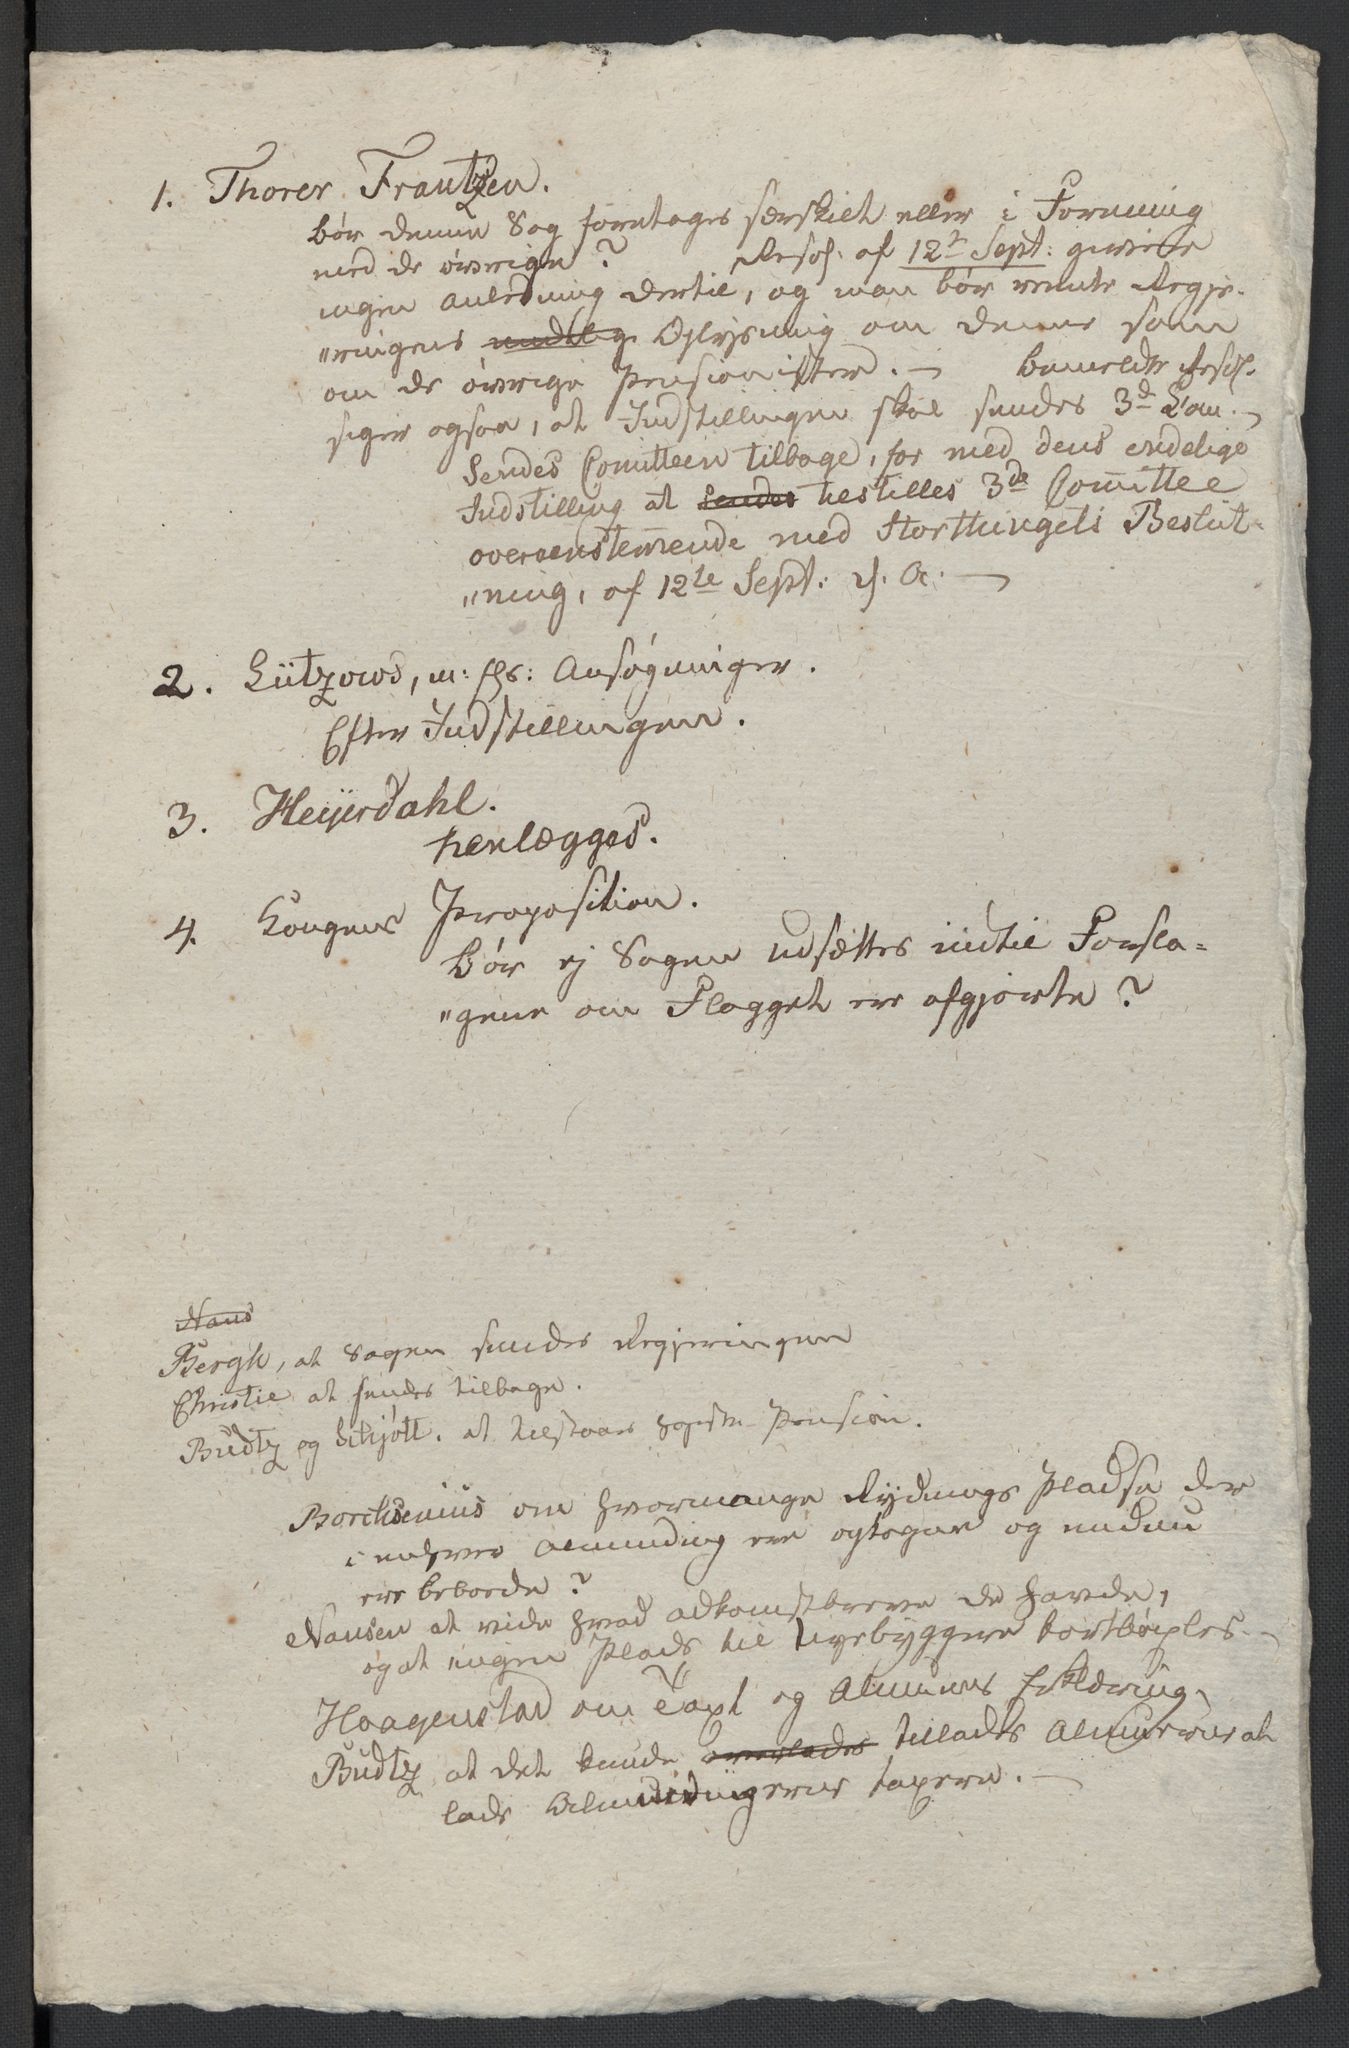 1. Thorer Frantzen.
bör denne Sag foretages særskilt eller i Forening
med de övrige? Resol: af 12te Sept: giver
ingen anledning dertil, og man bör vente Regje-
"ringens mundtlig Oplysning om denne som
om de övrige Pensionister. — bemeldte Resol.
siger ogsaa, at Indstillingen skal sendes 3de Com. —
Sendes Comitteen tilbage, for med dens endelige
Indstilling at sendes tilstilles 3de Comittee
overeenstemmende med Storthingets Beslut-
"ning, af 12te Sept: d. A. —
2. Lützows, m: fl: Ansögninger.
Efter Indstillingen.
3. Heijerdahl.
henlægges.
4. Kongens Proposition.
Bör ej Sagen udsættes indtil Forsla=
"gene om Flagget ere afgjorte?
Nans
Bergh, at Sagen sendes Regjeringen
Christie at sendes tilbage.
Budtz og Schjött. at tilstaaes Pension.
Borchsenius om hvormange Rydnings Pladse der
i enhver Alminding ere optagne og endnu
ere beboede?
Nansen at vide hvad adkomstbreve de havde,
og at ingen Plads til Nyebyggere bortböxles. —
Haagenstad om Taxt og Almuens Erklæring,
Budtz at det burde overlades tillades Almuerne at
lade Almindingerne taxere. —